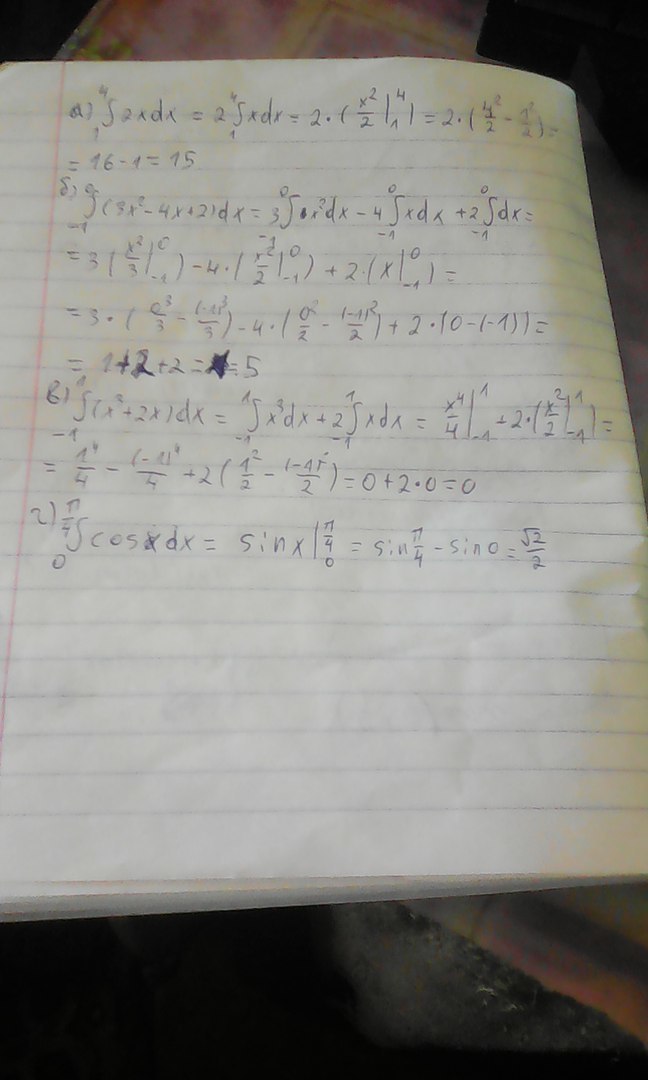 а) ₁⁴∫2xdx = 2₁⁴∫xdx = 2·(x²/2|₁⁴) = 2·(4²/2 - 1²/2) =
= 16-1 = 15
б) ₋₁⁰∫(3x²-4x+2)dx = 3₋₁⁰∫x²dx - 4₋₁⁰∫xdx + 2₋₁⁰∫dx =
= 3(x²/3|₋₁⁰) - 4·(x²/2|₋₁⁰) + 2·(x|₋₁⁰) =
= 3·(0³/3 - (-1)³/3) - 4·(0²/2 - (-1)²/2) + 2·(0-(-1)) =
= 1+2+2 = 5
в) ₋₁¹∫(x³+2x)dx = ₋₁¹∫x³dx + 2₋₁¹∫xdx = x⁴/4|₋₁¹ + 2·(x²/2|₋₁¹) =
= 1⁴/4 - (-1)⁴/4 + 2(1²/2 - (-1)²/2) = 0+2·0 = 0
г) ₀^(π/4)∫cosxdx = sinx|₀^(π/4) = sin π/4 - sin0 = √2/2